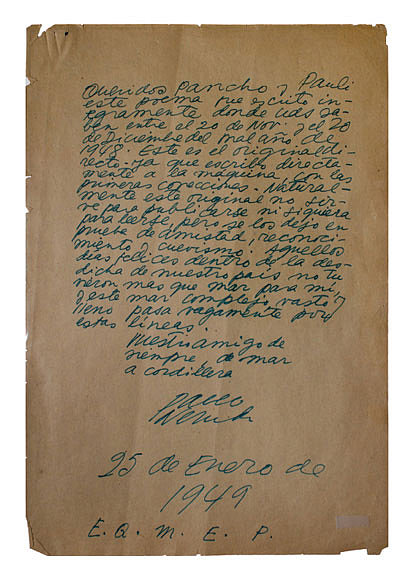 Queridos Pancho y Pauli
este poema fue escrito in-
tegramente donde uds sa-
ben entre el 20 de Nov. y el 20
de Diciembre del mal año de
1948. Este es el original di-
recto ya que escribo directa-
mente a la maquina, con las
primeras correcciones. Natural-
mente este original no sir-
ve para publicarse ni siquiera
para leerse pero se los dejo en
prueba de amistad, reconoci-
miento y cuervismo. Aquellos
dias felices dentro de la des-
dicha de nuestro pais no tu-
vieron mas que mar para mi,
y este mar complejo, vasto y
lleno pasa vagamente por
estas lineas.
Vuestro amigo de
siempre, de mar
a cordillera
Pablo
Neruda
25 de Enero de
1949
E. Q. M. E. P.